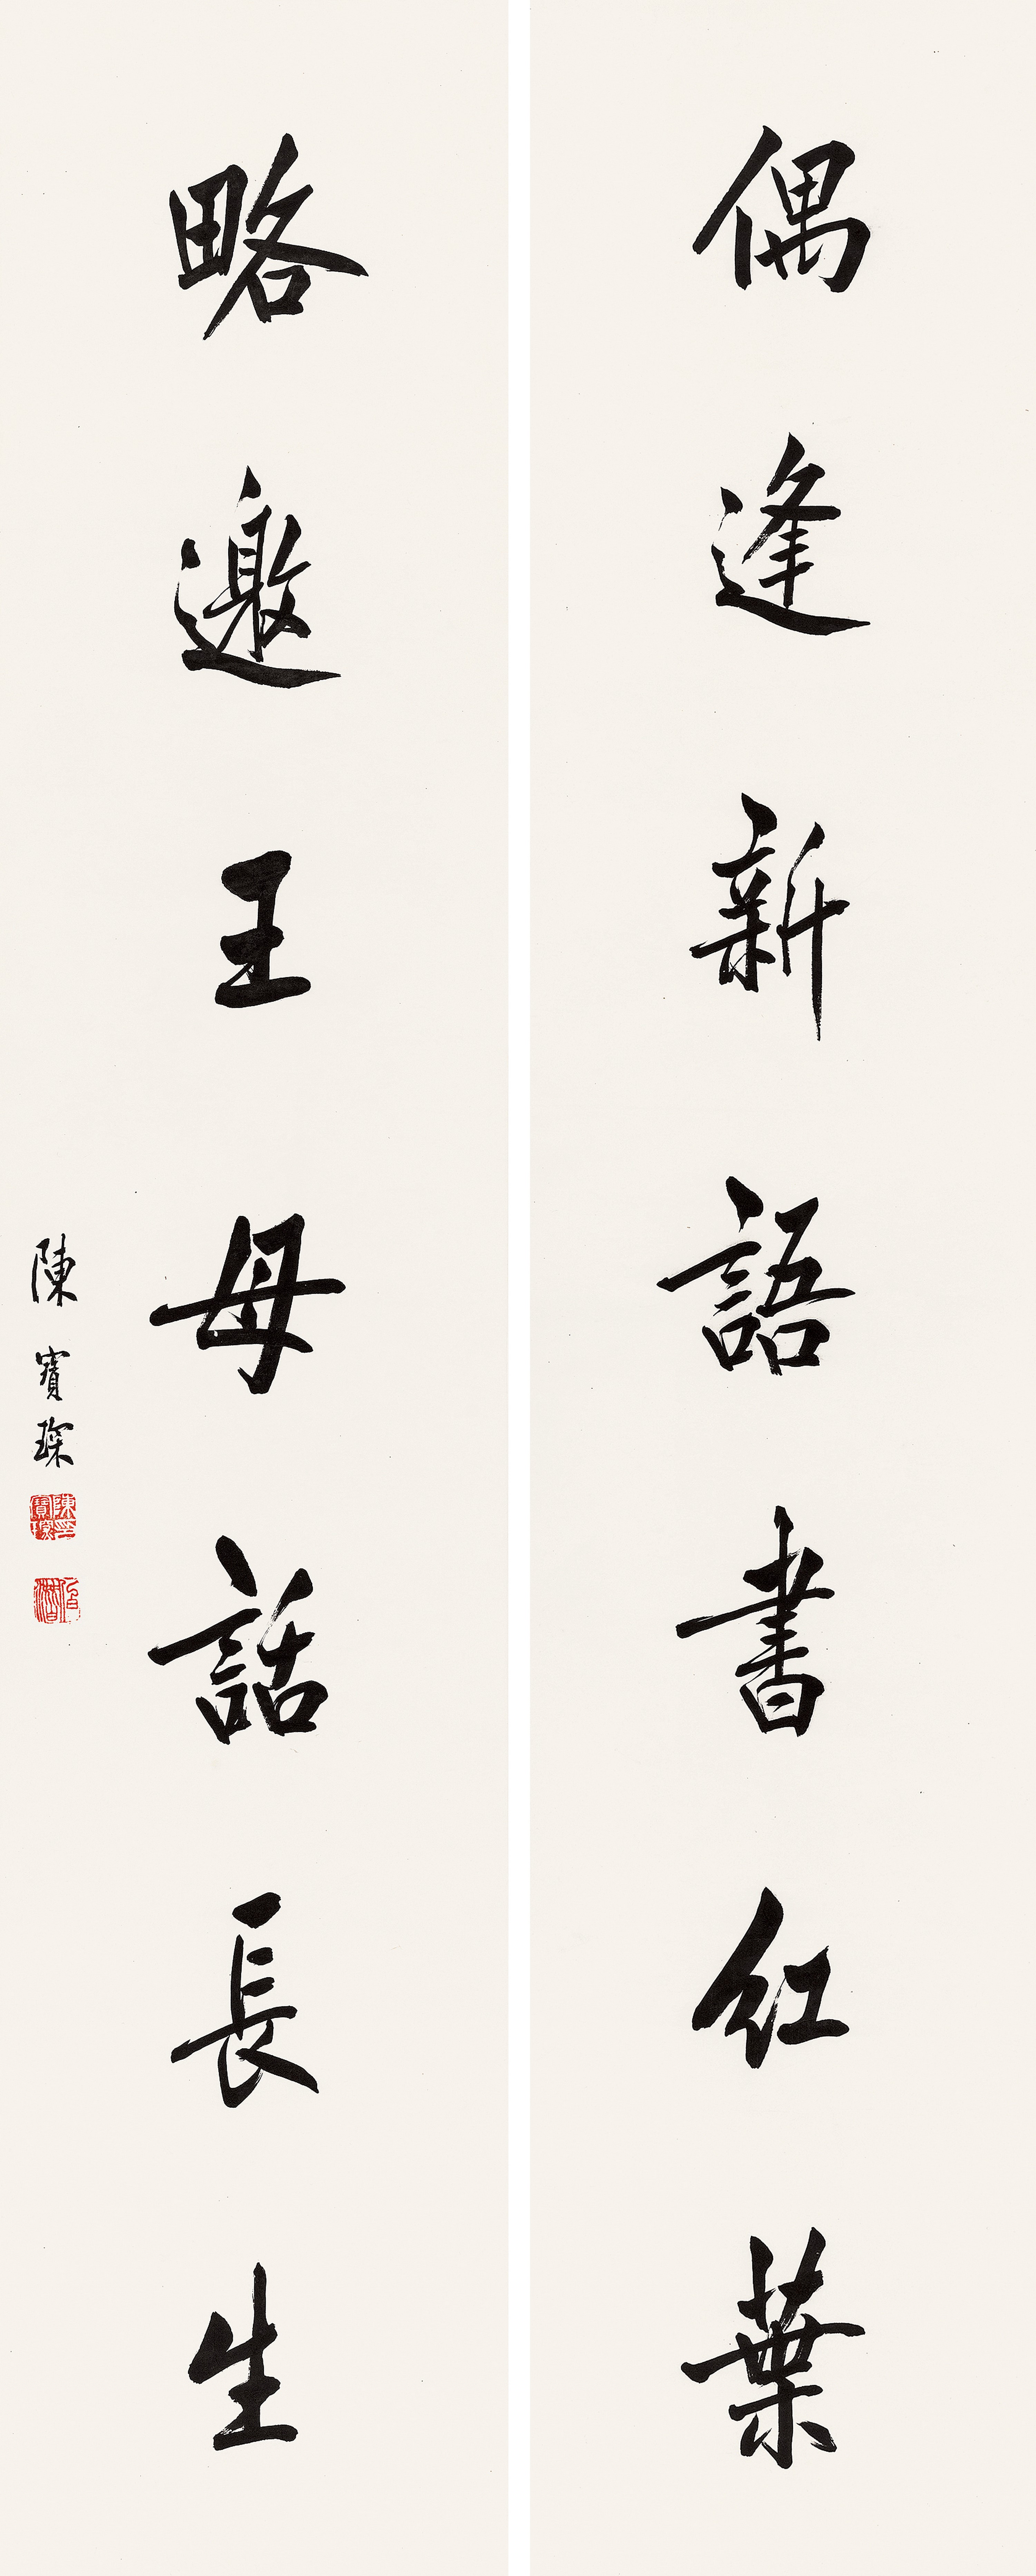 偶逢新語書紅葉
略邀王母話長生
陳寶琛
陳寶琛印